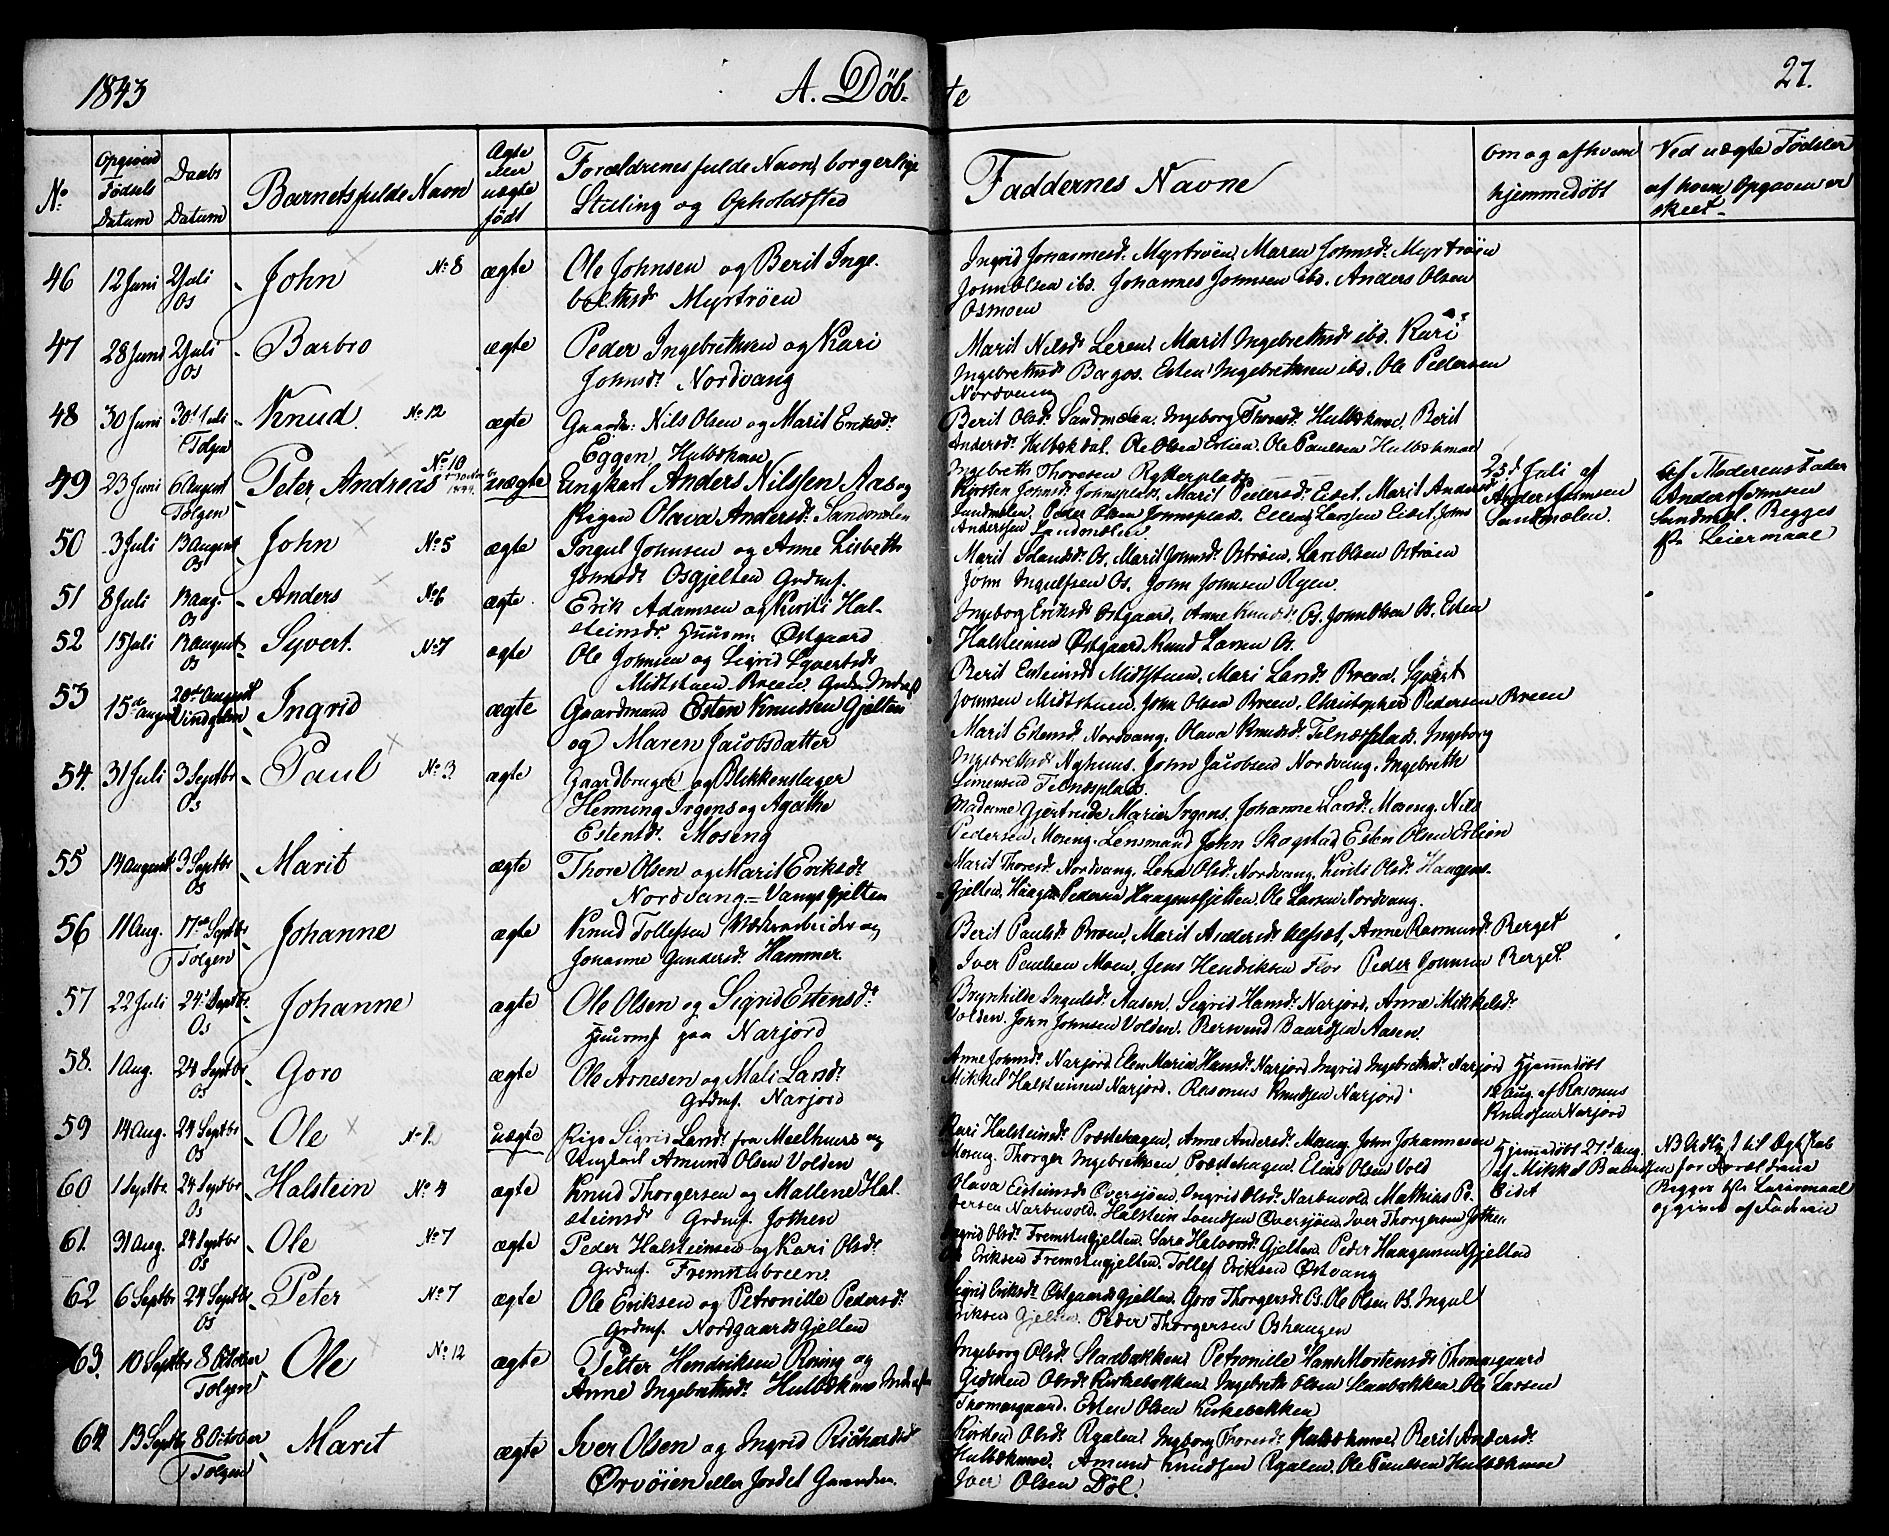 1843 A. Döb- te 27.
No Opgivend Fødsels Datum Daabs Datum Barnets fulde Navn Ægte eller uægte født Forældrenes fulde Navn, borgerlige Stilling og Opholdssted Faddernes Navne Om og af hvem hjemmedøbt Ved uægte Fødsler af hvem Opgaven er skeet.
46 12 Juni 2 Juli Os John No 8 ægte Ole Johnsen og Berit Inge-
bolthsdr Myrtröen
Ingrid Johannesdr Myrtröen, Maren Johnsdr Myrtröen
John Olsen ibd. Johannes Johnsen ibd. Anders Olsen
Osmoen
47 28 Juni 2 Juli Os Barbro ægte Peder Ingebrethsen og Kari
Johnsdr Nordvang
Marit Nilsdr Leren, Marit Ingebrethsdr ibd. Kari
Ingebrethsdr Borgos. Esten Ingebrethsen ibd. Ole Pedersen
Nordvang
48 30 Juni 30t Juli Tolgen Knud No 12 ægte Gaardm: Nils Olsen og Marit Eriksdr
Eggen, Hulbækmoe
Berit Olsdr Sandmælen. Ingeborg Thoresdr Hulbækmoe, Berit
Andersdr Hulbækdal. Ole Olsen Erlien. Ole Paulsen Hulbækmoe
Ingebreth Thoresen Rykkerplads
49 23 Juni 6 August Tolgen Peter Andreas No 10 1844. uægte Ungkarl Anders Nilssen Aas og
Pigen Olava Andersdr Sandmælen
Kirsten Johnsdr Johnsplads, Marit Pedersdr Eidet. Marit Andersdr
Sandmælen. Peder Olsen Johnsplads. Ellend Larssen Eidet. Johs
Anderssen Sandmælen
23d Juli af
Anders Johnsen
Sandmælen.
Af Moderens Fader
Anders Johnsen
Sandmæl. Begges
1ste Leiermaal
50 3 Juli 13 August Os John No 5 ægte Ingul Johnsen og Anne Lisbeth
Johnsdr Osgjelten Grdmf.
Marit Olsdr Os, Marit Johnsdr Oströen, Lars Olsen Oströen
John Ingulfsen Os. John Johnsen Ryen.
51 8 Juli 13 Aug. Os Anders No 6 ægte Erik Adamsen og Kirsti Hal-
steinsdr Huusm. Østgaard
Ingeborg Eriksdr Østgaard, Anne Knudsdr Os. John Olsen Os. Esten
Halsteinsen Østgaard Knud Larsen Os.
52 15 Juli 13 August Os Syvert. No 7 ægte Ole Johnsen og Sigrid Syvertsdr
Midtstuen-Breen. Grdm. Inderst
Berit Estensdr Midtstuen, Mari Larsdr Breen. Syvert
Johnsen Midtstuen. John Olsen Breen. Christopher Pedersen Breen
53 15de August 20de August Vingelen Ingrid ægte Gaardmand Esten Knudsen Gjelten
og Maren Jacobsdatter
Marit Estensdr Nordvang. Olava Knudsdr Telnæsplads. Ingeborg
Ingebrethsdr Nyhuus. John Jacobsen Nordvang. Ingebreth
Simensen Telnæsplads.
54 31 Juli 3 Septbr Os Paul No 3 ægte Gaardbruger og Blikkenslager
Henning Irgens og Agathe
Estensdr Moseng
Madame Gjertrude Marie Irgens. Johanne Larsdr Moseng. Nils
Pedersen Moseng. Lensmand John Skogstad Esten Olsen Erlien
55 14 August 3 Septbr Os Marit ægte Thore Olsen og Marit Eriksdr
Nordvang = Vangsgjelten
Marit Thoresdr Nordvang, Lena Olsdr Nordvang, Kirsti Olsdr Haagens-
Gjelten, Haagen Pedersen Haagensgjelten. Ole Larsen Nordvang.
56 11 Aug. 17de Septbr Tolgen Johanne ægte Knud Tollefsen Værksarbeider og
Johanne Gundersdr Hammer.
Berit Paulsdr Breen, Marit Andersdr Alfset, Anne Rasmusdr Berget
Iver Paulsen Moen, Jens Hendriksen Fior Peder Johnsen Berget
57 22 Juli 24d Septbr. Os Johanne ægte Ole Olsen og Sigrid Estensdr
Huusmf paa Narjord
Brynhilde Ingulsdr Aasen, Sigrid Hansdr Narjord, Anne Mikkelsdr
Volden. John Johnsen Volden. Berwend Baardsen Aasen.
58. 1 Aug. 24 Septbr Os Goro ægte Ole Arnesen og Mali Larsdr
Grdmf. Narjord
Anne Johnsdr Narjord Elen Maria Hansdr Narjord, Ingrid Ingebrethsdr Narjord
Mikkel Halsteinsen Narjord. Rasmus Knudsen Narjord.
Hjemmedøbt
12 Aug. af Rasmus
Knudsen Narjord
59 14 Aug. 24 Septbr Os Ole No 1 uægte Pige Sigrid Larsdr fra Meelhuus og
Ungkarl Amund Olsen Volden
Kari Halsteinsdr Præstehagen, Anne Andersdr Moseng John Johannesen
Moseng. Thorger Ingebrethsen, Præstehagen, Elias Olsen Vold
Hjemmedøbt 27d Aug.
af Mikkel Baardsen
Eidet
for Forældrene
Begges 1ste Leiermaal
opgivet af Faderen
60 1 Septbr. 24 Septbr Os Halstein No 4 ægte Knud Thorgersen og Mallene Hal-
steinsdr Grdmf. Jothen
Olava Eisteinsdr Oversjøen, Ingrid Olsdr Narbuvold. Mathias Pe-
dersen Narbuvold. Halstein Svendsen Oversjøen. Iver Thorgersen Jothen
61. 31 Aug. 24 Septbr Os Ole No 7 ægte Peder Halsteinsen og Kari Olsdr
Grdmf. Fremstubreen.
Ingrid Olsdr Fremstugjelten. Sara Halvorsdr Gjelten. Peder Haagensen Gjelten
Ole Eriksen Fremstugjelten. Tollef Eriksen Østvang
62 6 Septbr 24 Septbr Os Peter No 7 ægte Ole Eriksen og Petronille Pedersdr
Grdmf. Nordgaards Gjelten
Sigrid Eriksdr Østgaards Gjelten. Goro Thorgersdr Os. Ole Olsen Os. Ingul
Eriksen Gjelten. Peder Thorgersen Oshaugen
63. 10 Septbr 8 October Tolgen Ole No 12 ægte Petter Hendriksen Röring og
Anne Ingebrethsdr Hulbækmoe Inderster
Ingeborg Olsdr Staabakken, Petronille Hans Mortensdr Thomasgaard
Gidsken Olsdr Kirkebakken, Ingebreth Olsen Staabakken. Ole Larsen
Thomasgaard. Esten Olsen Kirkebakken
64. 13 Septbr 8 October Tolgen Marit ægte Iver Olsen og Ingrid Richardsdr
Ørvöien eller Jordet Gaardm.
Kirsten Olsdr Rgalen, Ingeborg Thoresdr Hulbækmoe, Berit Andersdr
Hulbækmoe. Amund Knudsen Rgalen. Ole Paulsen Hulbækmoe
Iver Olsen Döl.